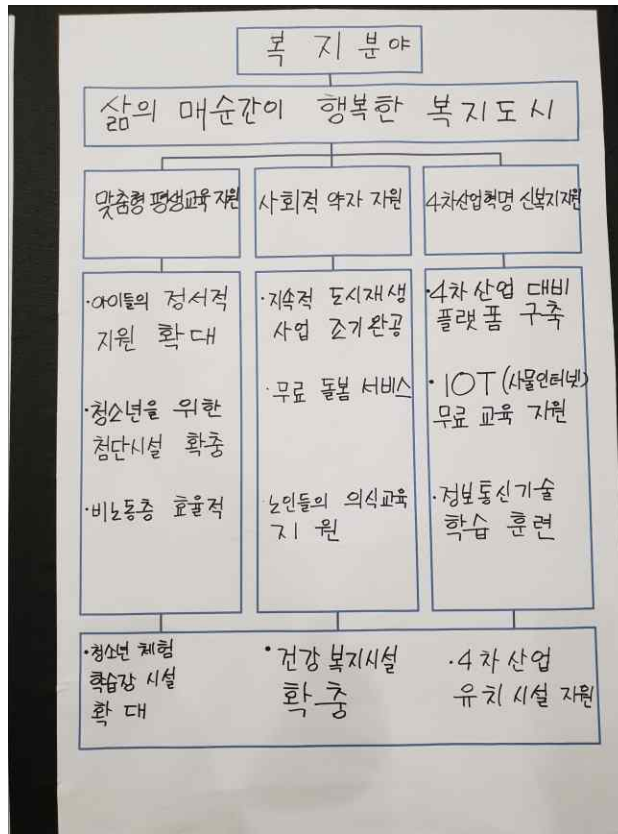 복 지 분야
삶의 매순간이 행복한 복지도시
맞춤형 평생교육 지원
사회적 약자 지원
4차산업혁명 신복지지원
·아이들의 정서적
지원 확대
·청소년을 위한
첨단시설 확충
·비노동층 효율적
·지속적 도시재생
사업 조기완공
·무료 돌봄 서비스
노인들의 의식교육
지 원
·4차 산업 대비
플랫폼 구축
·IOT (사물인터넷)
무료 교육 지원
·정보통신기술
학습 훈련
·청소년 체험
학습장 시설
확 대
·건강 복지시설
확 충
·4차 산업
유치시설 지원